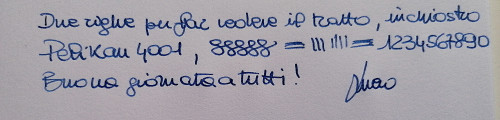 Due righe per far vedere il tratto, inchiostro
Pelikan 4001, 88888 = 111 1111 = 1234567890
Buona giornata a tutti!